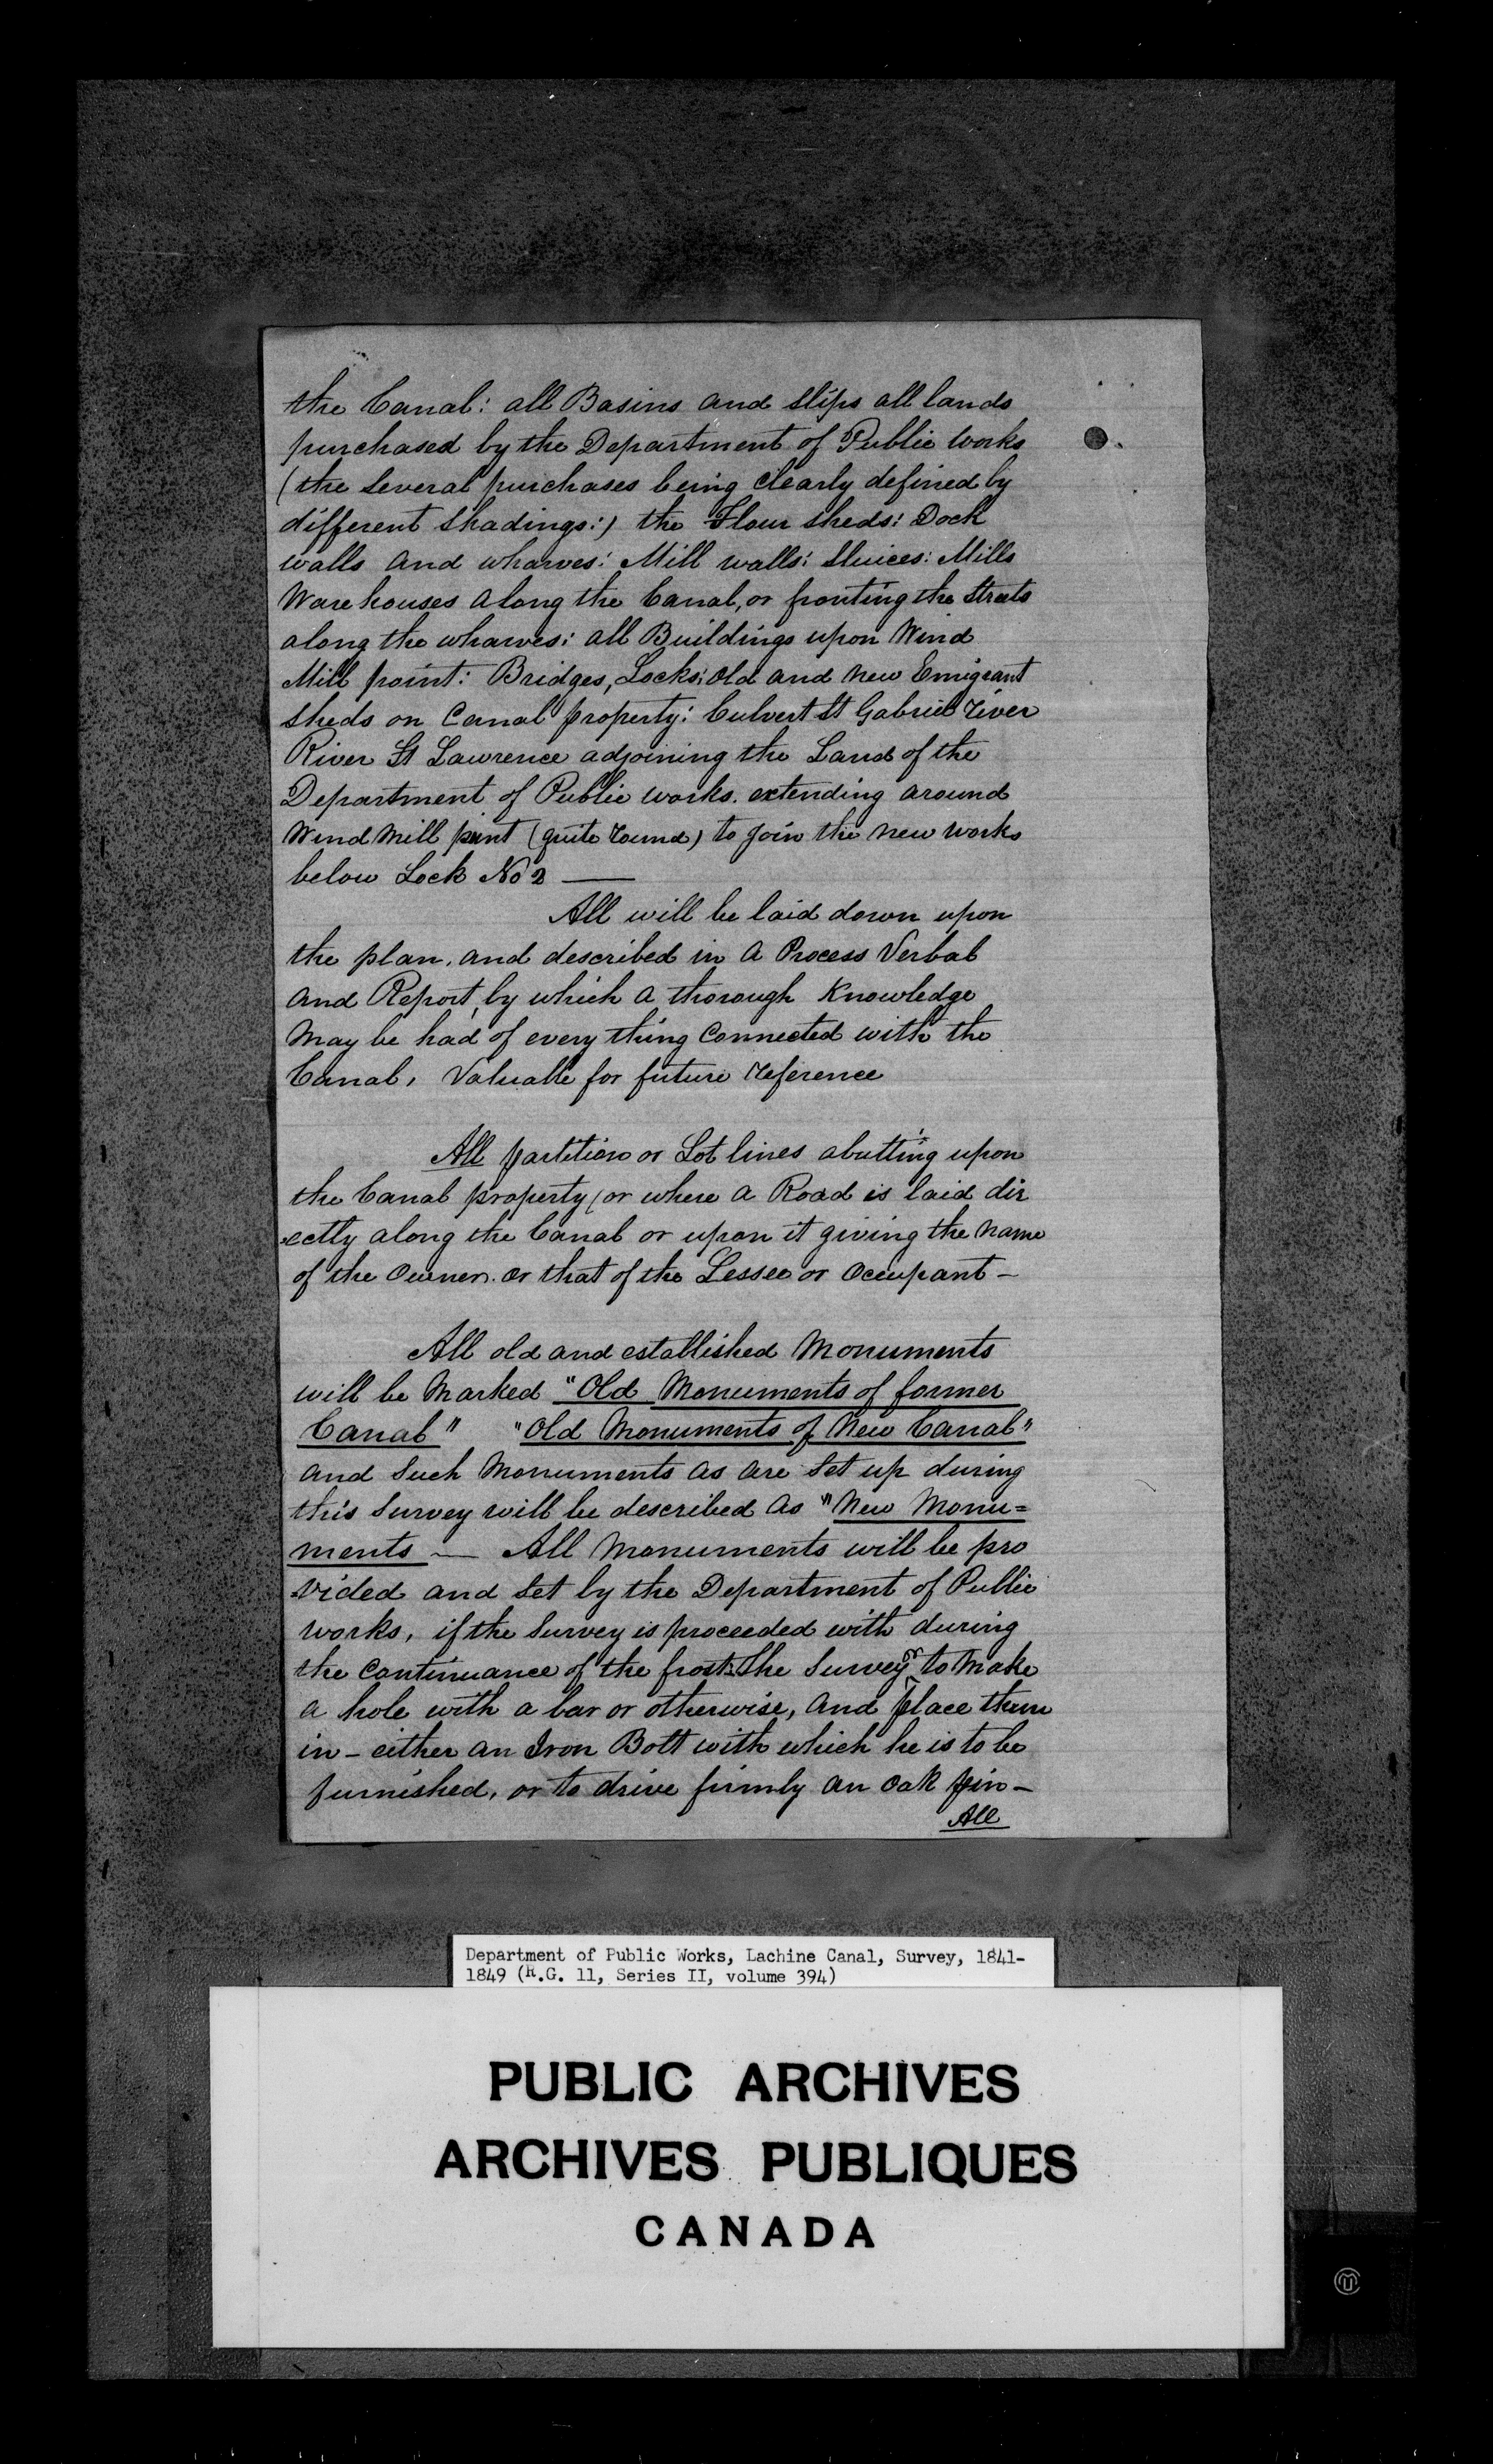 the Canal: all Basins and Slips all lands
purchased by the Department of Public Works
(the Several purchases being Clearly defined by
different Shadings:) the Flour Sheds: Dock
walls and wharves: Mill walls: Sluices: Mills
Warehouses along the Canal, or fronting the Streets
along the wharves: all Buildings upon Wind
Mill point: Bridges, Locks: Old and New Emigrant
Sheds on Canal property: Culvert St Gabriel river
River St Lawrence adjoining the Land of the
Department of Public works. extending around
Wind Mill point (quite round) to join the new works
below Lock No 2 —
All will be laid down upon
the plan, and described in a Process Verbal
and Report, by which a thorough Knowledge
May be had of every thing Connected with the
Canal, Valuable for future reference
All partition or Lot lines abutting upon
the Canal property (or where a Road is laid dir
ectly along the Canal or upon it giving the name
of the Owner. or that of the Lessee or Occupant —
All old and established Monuments
will be Marked "Old Monuments of former
Canal" "Old Monuments of New Canal"
and Such Monuments as are Set up during
this Survey will be described as "New Monu=
ments — All Monuments will be pro
vided and Set by the Department of Public
works, if the Survey is proceeded with during
the Continuance of the frost. The Surveyor to Make
a hole with a bar or otherwise, and place them
in - either an Iron Bolt with which he is to be
furnished, or to drive firmly an Oak pin —
All
Department of Public Works, Lachine Canal, Survey, 1841-
1849 (R.G. 11, Series II, volume 394)
PUBLIC ARCHIVES
ARCHIVES PUBLIQUES
CANADA